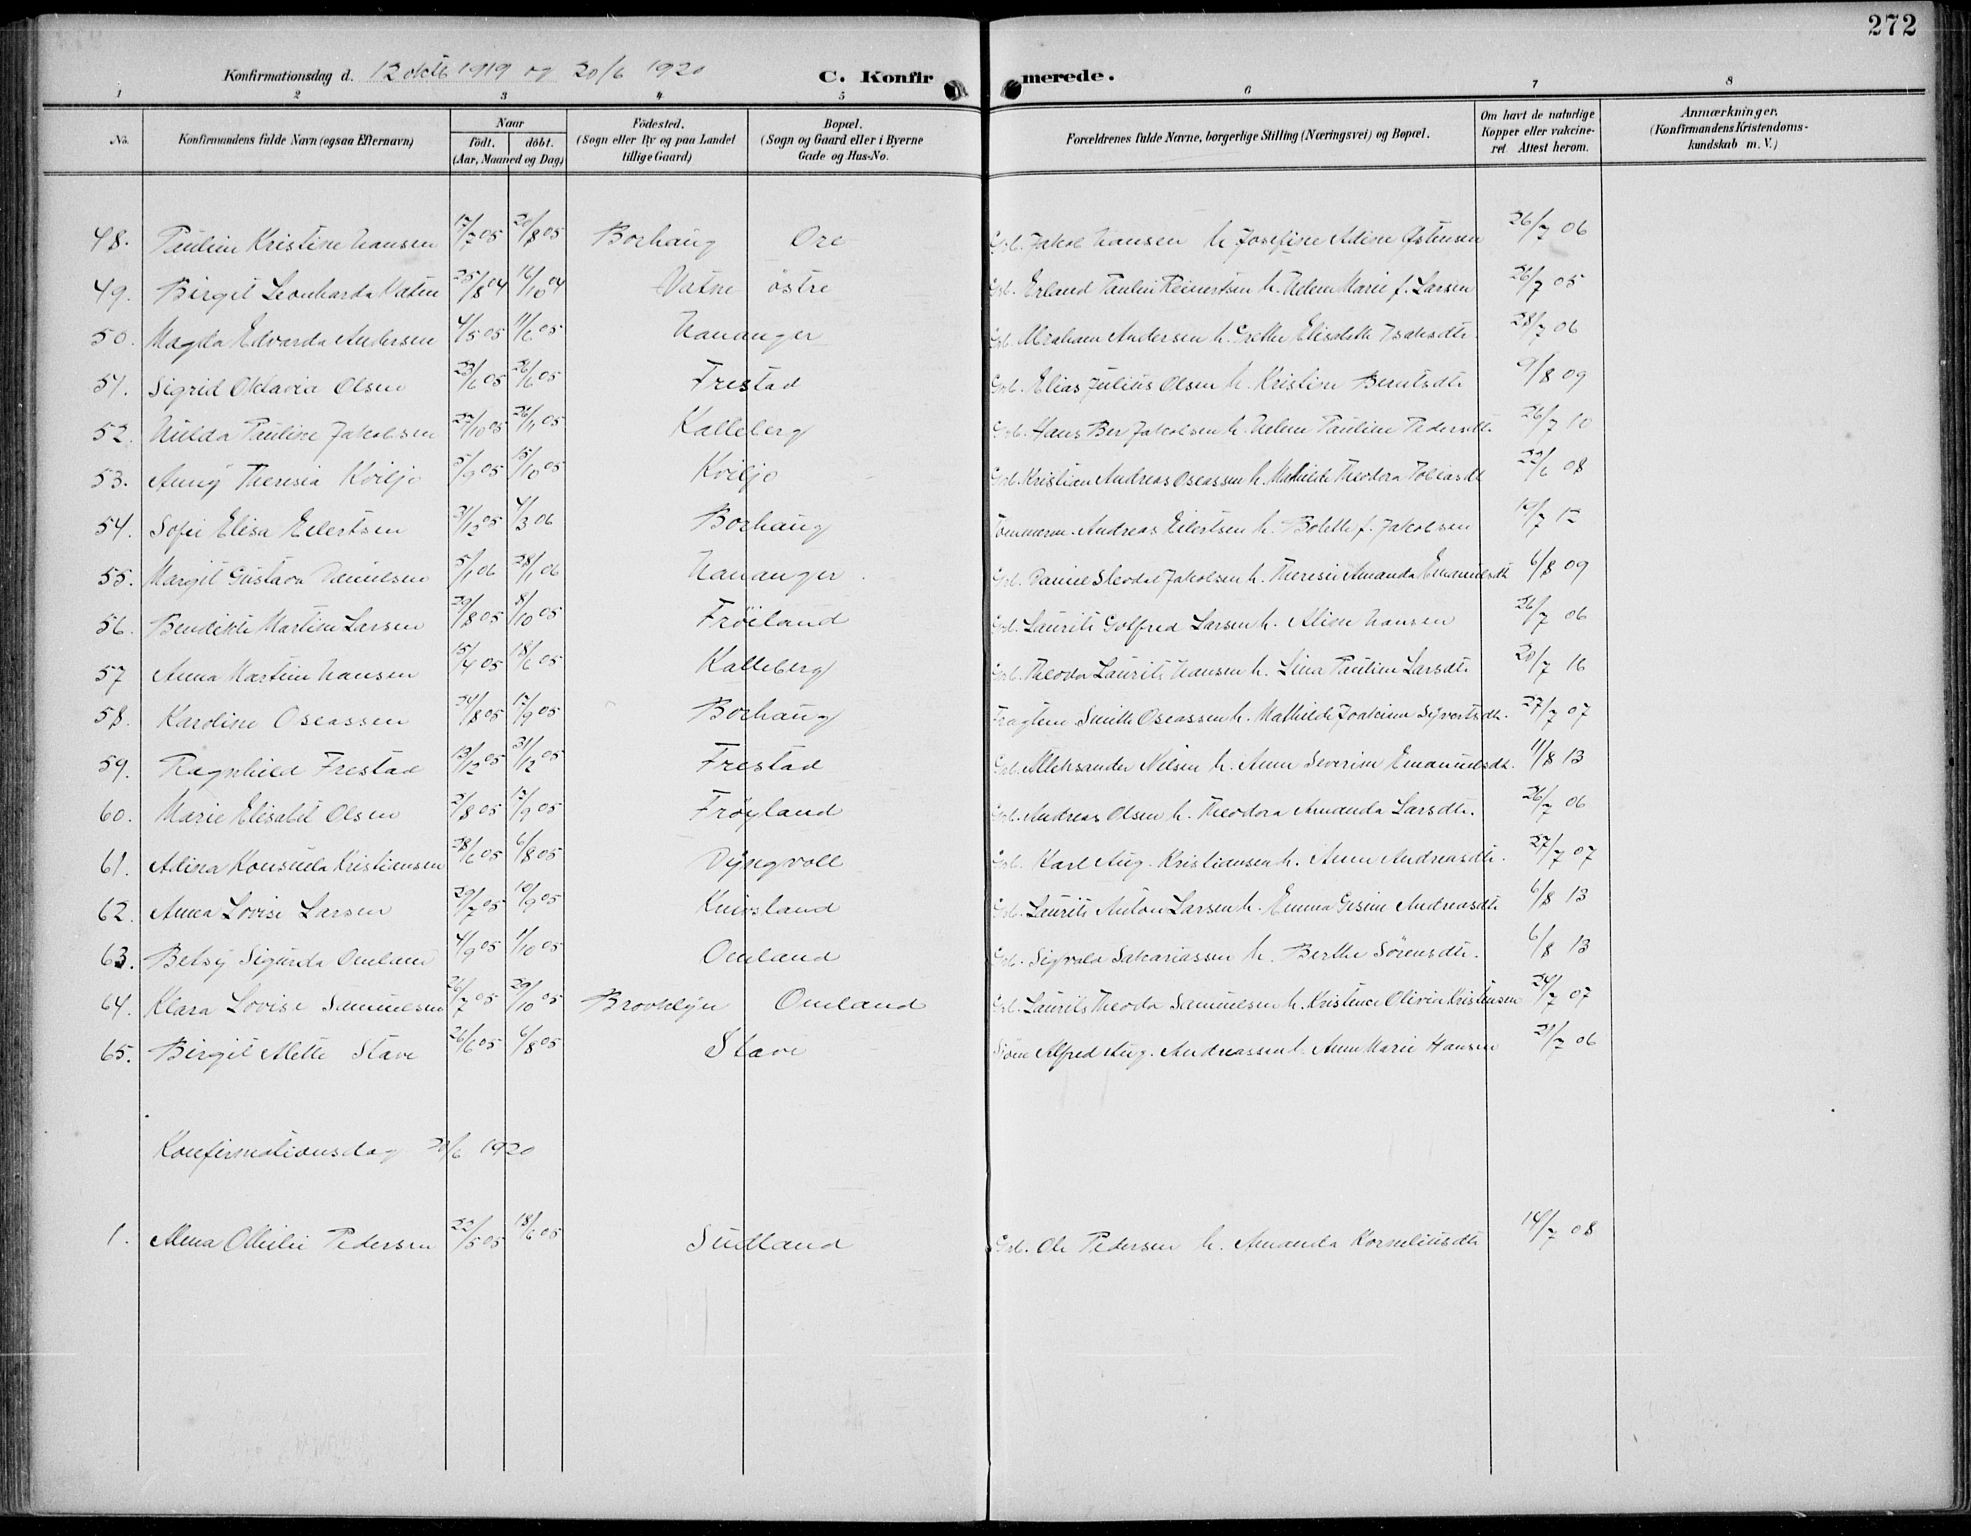 272
Konfirmationsdag d. 12 oktb 1919 og 20/6 1920 C. Konfirmerede.
1 2 3 4 5 6 7 8
No. Konfirmandens fulde Navn (ogsaa Efternavn) Naar födt. döbt. (Aar, Maaned og Dag) Födested. (Sogn eller By og paa Landet tillige Gaard) Bopæl. (Sogn og Gaard eller i Byerne Gade og Hus-No. Forældrenes fulde Navne, borgerlige Stilling (Næringsvei) og Bopæl. Om havt de naturlige Kopper eller vakcineret. Attest herom. Anmærkninger. (Konfirmandens Kristendomskundskab m. V.)
48. Pauline Kristine Hansen 17/7 05 20/8 05 Borhaug Ore Grb. Jakob Hansen h. Josefine Adine Østensen 26/7 06
49. Birgit Leonharda Vatne 25/8 04 16/10 04 Vatne östre Grb. Erland Paulin Reinertsen h. Helene Marie f. Larsen 26/7 05
50. Magda Edvarda Andersen 4/5 05 11/6 05 Hananger Grb. Abraham Andersen h. Grethe Elisabeth Isaksdtr. 28/7 06
51. Sigrid Oktavia Olsen 23/6 05 Frestad Grb. Elias Julius Olsen h. Kristine Berntsdtr 9/8 09
52. Hulda Pauline Jakobsen 27/10 05 26/11 05 Kalleberg Grb. Hans Ber Jakobsen h. Helene Pauline Pedersdtr. 26/7 10
53. Anny Theresia Kviljo 5/9 05 15/10 05 Kviljo Grb. Kristian Andreas Oseassen h. Mathilde Theodora Tobiasdt 22/6 08
54. Sofie Elisa Eilertsen 31/12 05 4/3 06 Borhaug Tömmerm. Andreas Eilertsen h. Bolette f. Jakobsen 19/7 12
55. Margit Gustava Danielsen 5/1 06 28/1 06 Hananger Grb. Daniel Skeodal Jakobsen h. Theresie Amanda Emanuelsdt 6/8 09
56. Bendikte Martine Larsen 29/8 05 8/10 05 Fröiland Grb. Laurits Gotfred Larsen h. Aline Hansen 26/7 06
57 Anna Martine Hansen 15/4 05 18/6 05 Kalleberg Grb. Theodor Laurits Hansen h. Lina Pauline Larsdtr 20/7 16
58. Karoline Oseassen 24/8 05 17/9 05 Borhaug Smith Oseassen h. Mathilde Joakime Syvertsdtr. 27/7 07
59. Ragnhild Frestad 13/12 05 31/12 05 Frestad Grb. Aleksander Nilsen h. Anne Severine Emanuelsdtr. 11/8 13
60. Marie Elisabet Olsen 2/8 05 17/9 05 Fröyland Grb. Andreas Olsen h. Theodora Amanda Larsdtr. 26/7 06
61. Adina Konsuda Kristiansen 28/6 05 6/8 05 Dyngvoll Grb. Karl Aug. Kristiansen h. Anne Andreasdtr. 27/7 07
62. Anna Lovise Larsen 29/7 05 10/9 05 Knivsland Grb. Laurits Anton Larsen h. Emma Gesine Andreasdtr 6/8 13
63. Betsy Sigurda Omland 4/9 05 1/10 05 Omland Grb. Sigvald Sakariassen h. Berthe Sörensdtr. 6/8 13
64. Klara Lovise Samuelsen 26/7 05 29/10 05 Brovklyn Omland Grb. Laurits Theodor Samuelsen h. Kristence Olivia Kristensen 24/7 07
65. Birgit Alette Stave 26/6 05 6/8 05 Stave Alfred Aug. Andreassen h. Anne Marie Hansen 21/7 06
Konfirmationsdag 20/6 1920
1. Alma Otilie Pedersen 22/5 05 18/6 05 Sudland Grb. Ole Pedersen h. Amanda Korneliusdtr 14/7 08